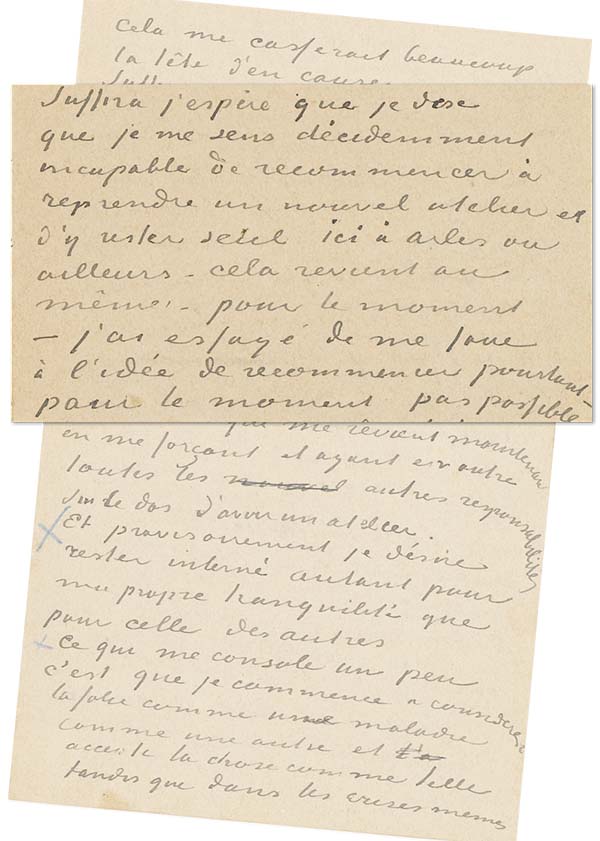 cela me casserait beaucoup
la tête d'en causer
Suffira j'espère que je dise
que je me sens décidemment
incapable de recommencer à
reprendre un nouvel atelier et
d'y rester seul ici à Arles ou
ailleurs – cela revient au
même – pour le moment
– j'ai essayé de me faire
à l'idée de recommencer pourtant –
pour le moment pas possible
qui me revient maintenant
en me forçant et ayant en outre
toutes les nouvel autres responsabilités
sur le dos d'avoir un atelier.
Et provisoirement je désire
rester interné autant pour
ma propre tranquilité que
pour celle des autres
Ce qui me console un peu
c'est que je commence à considerer
la folie comme une maladie
comme une autre et
accepte la chose comme telle
tandis que dans les crises mêmes